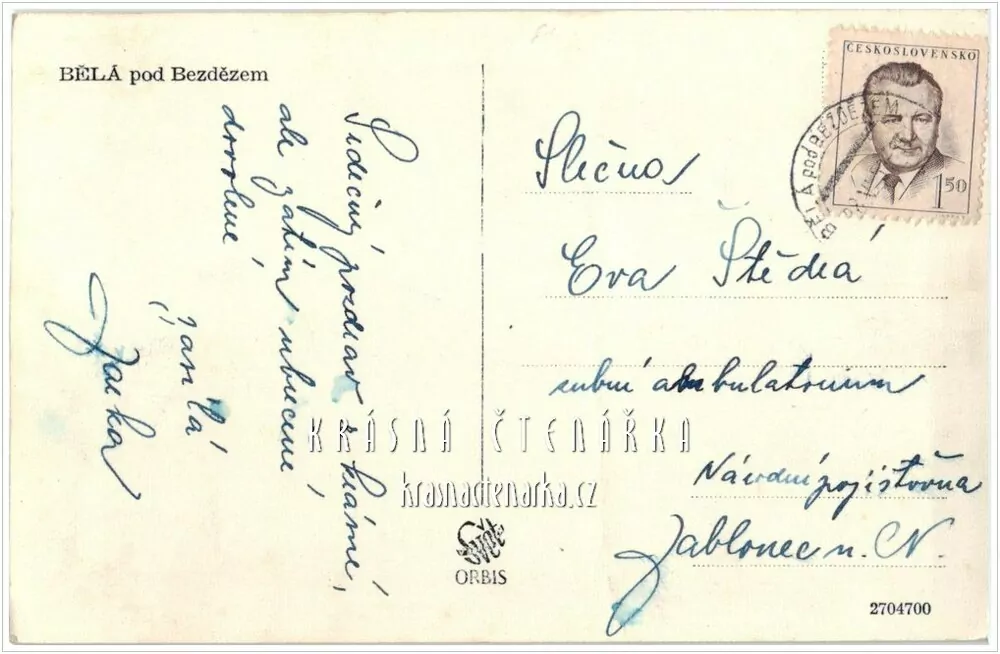 BĚLÁ pod Bezdězem
Srdečný pozdrav z krásné,
ale zatím ubrečené
dovolené
Janka
Slečna
Eva Štědrá
zubní ambulatorium
Národní pojišťovna
Jablonec n. N.
ČESKOSLOVENSKO
1 50
BĚLÁ pod BEZDĚZEM
KRÁSNÁ ČTENÁŘKA
krasnactenarka.cz
ORBIS
2704700